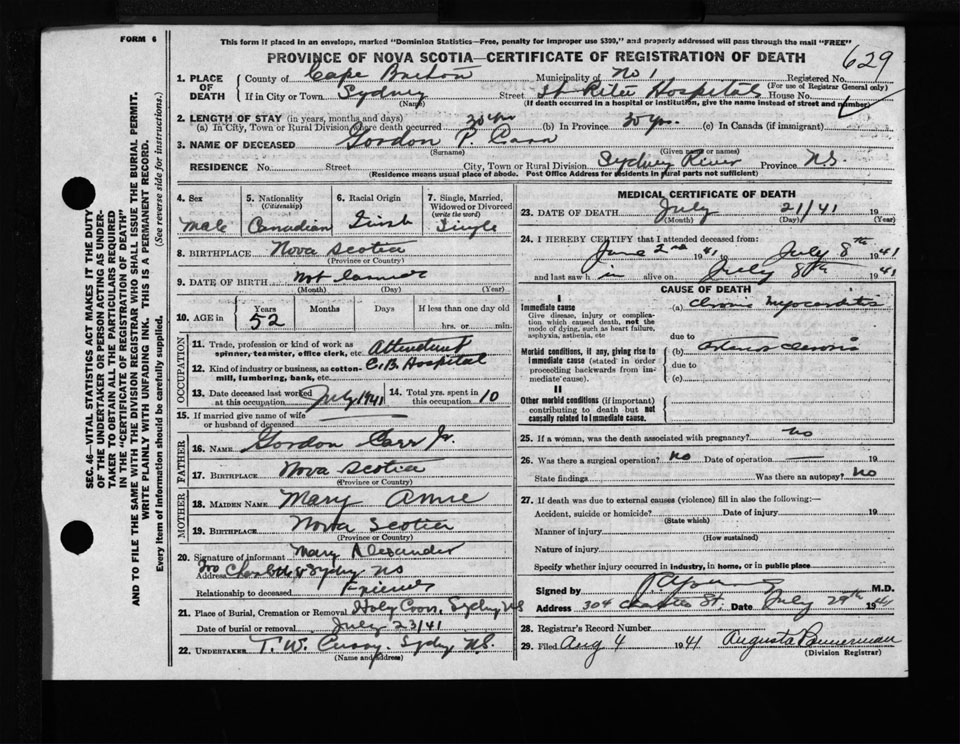 FORM 6
This form if placed in an envelope, marked "Dominion Statistics—Free, penalty for improper use $300," and properly addressed will pass through the mail "FREE"
PROVINCE OF NOVA SCOTIA—CERTIFICATE OF REGISTRATION OF DEATH
629
1. PLACE OF DEATH
County of Cape Breton Municipality of No 1 Registered No.
(For use of Registrar General only)
If in City or Town Sydney Street St Rita Hospital House No.
(Name) (If death occurred in a hospital or institution, give the name instead of street and number)
2. LENGTH OF STAY (in years, months and days)
(a) In City, Town or Rural Division where death occurred 30 yrs (b) In Province 30 yrs. (c) In Canada (if immigrant)
3. NAME OF DECEASED Gordon P. Carr
(Surname) (Given name or names)
RESIDENCE No. Street City, Town or Rural Division Sydney River Province N.S.
(Residence means usual place of abode. Post Office Address for residents in rural parts not sufficient)
4. Sex Male
5. Nationality (Citizenship) Canadian
6. Racial Origin Irish
7. Single, Married, Widowed or Divorced (write the word) Single
8. BIRTHPLACE Nova Scotia
(Province or Country)
9. DATE OF BIRTH Not
(Month) (Day) (Year)
10. AGE in Years 52 Months Days If less than one day old
hrs. or min.
OCCUPATION
11. Trade, profession or kind of work as spinner, teamster, office clerk, etc. Attendant
12. Kind of industry or business, as cotton-mill, lumbering, bank, etc. C.B. Hospital
13. Date deceased last worked at this occupation July 1941
14. Total yrs. spent in this occupation 10
15. If married give name of wife or husband of deceased
FATHER
16. NAME Gordon Carr Sr.
17. BIRTHPLACE Nova Scotia
(Province or Country)
MOTHER
18. MAIDEN NAME Mary Anne
19. BIRTHPLACE Nova Scotia
(Province or Country)
20. Signature of informant Mary Alexander
Address Charlotte St Sydney NS
Relationship to deceased Friend
21. Place of Burial, Cremation or Removal Holy Cross, Sydney NS
Date of burial or removal July 23/41
22. UNDERTAKER T. W. Curry, Sydney N.S.
(Name and address)
MEDICAL CERTIFICATE OF DEATH
23. DATE OF DEATH July 21/41 19
(Month) (Day) (Year)
24. I HEREBY CERTIFY that I attended deceased from:
June 2nd 1941 to July 8th 1941
and last saw h im alive on July 8th 1941
CAUSE OF DEATH
I
Immediate cause
Give disease, injury or complication which caused death, not the mode of dying, such as heart failure, asphyxia, asthenia, etc
(a) Chronic Myocarditis
due to
Morbid conditions, if any, giving rise to immediate cause (stated in order proceeding backwards from immediate cause).
(b)
due to
(c)
II
Other morbid conditions (if important) contributing to death but not causally related to immediate cause.
25. If a woman, was the death associated with pregnancy? No
26. Was there a surgical operation? No Date of operation — 19
State findings Was there an autopsy? No
27. If death was due to external causes (violence) fill in also the following:—
Accident, suicide or homicide? Date of injury 19
(State which)
Manner of injury
(How sustained)
Nature of injury
Specify whether injury occurred in industry, in home, or in public place
Signed by M.D.
Address 304 Charlotte St. Date July 29th 1941
28. Registrar's Record Number
29. Filed Aug 4 1941 Augusta Bannerman
(Division Registrar)
SEC. 46—VITAL STATISTICS ACT MAKES IT THE DUTY
OF THE UNDERTAKER OR PERSON ACTING AS UNDER-
TAKER TO OBTAIN ALL THE PARTICULARS REQUIRED
IN THE "CERTIFICATE OF REGISTRATION OF DEATH"
AND TO FILE THE SAME WITH THE DIVISION REGISTRAR WHO SHALL ISSUE THE BURIAL PERMIT.
WRITE PLAINLY WITH UNFADING INK. THIS IS A PERMANENT RECORD.
Every item of information should be carefully supplied. (See reverse side for instructions.)